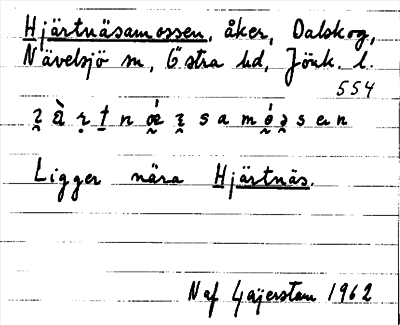 Hjärtnäsamossen, åker, Dalskog,
Nävelsjö sn, Östra hd, Jönk. l.
554
Ligger nära Hjärtnäs.
N af Gajerstam 1962